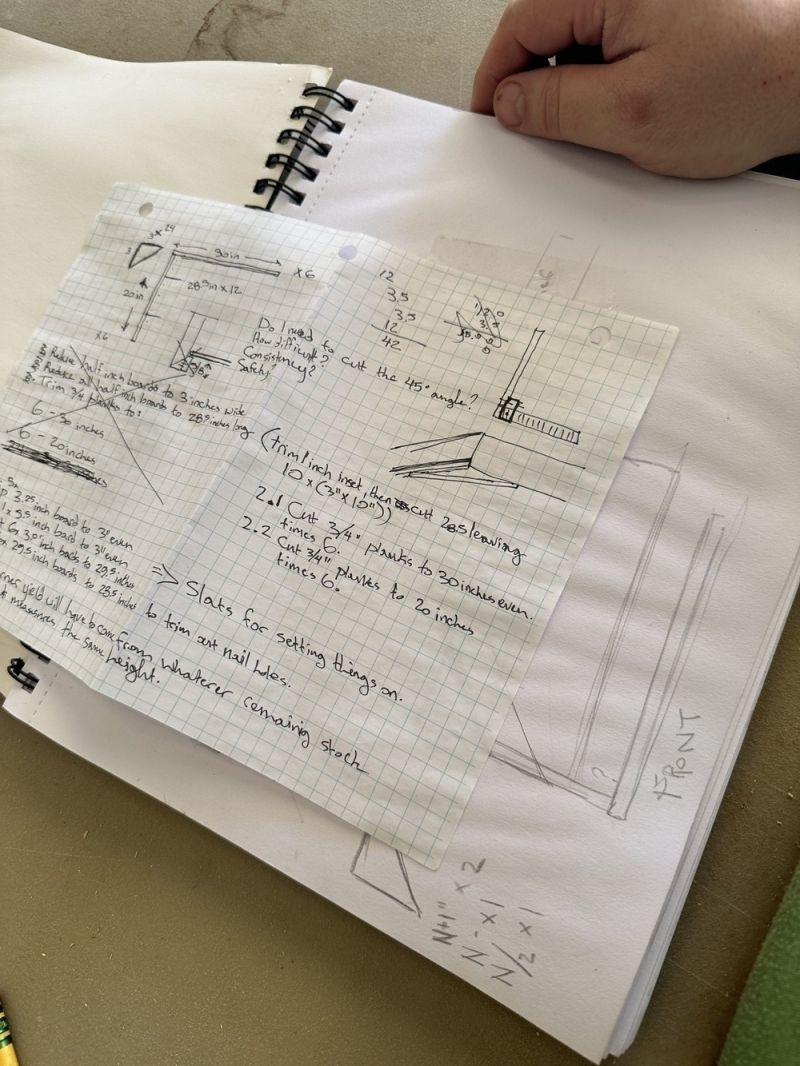 3 x 24
3
30in
x 6
20in
28.5in x 12
x6
12
3.5
3.5
12
42
Do I need to cutt the 45° angle?
How difficult?
Consistency?
Safety?
Reduce half inch boards to 3 inches wide
Reduce all half inch boards to 28.5 inches long
Trim 3/4 planks to:
6 - 30 inches
6 - 20 inches
3.25 inch board to 3" even
1 x 3.5 inch bard to 3" even
inch boards to 28.5 inches
(trim 1 inch inset, then cutt 28.5 leaving
10 x (3" x 10"))
2.1 Cut 3/4" planks to 30 inches even.
times 6.
2.2 Cut 3/4" planks to 20 inches
times 6.
=> Slats for setting things on.
yield will have to come from whatever remaining stock
to trim out nail holes.
measures the same height.
?
FRONT
N+1" x 2
N- x1
N/2 x1